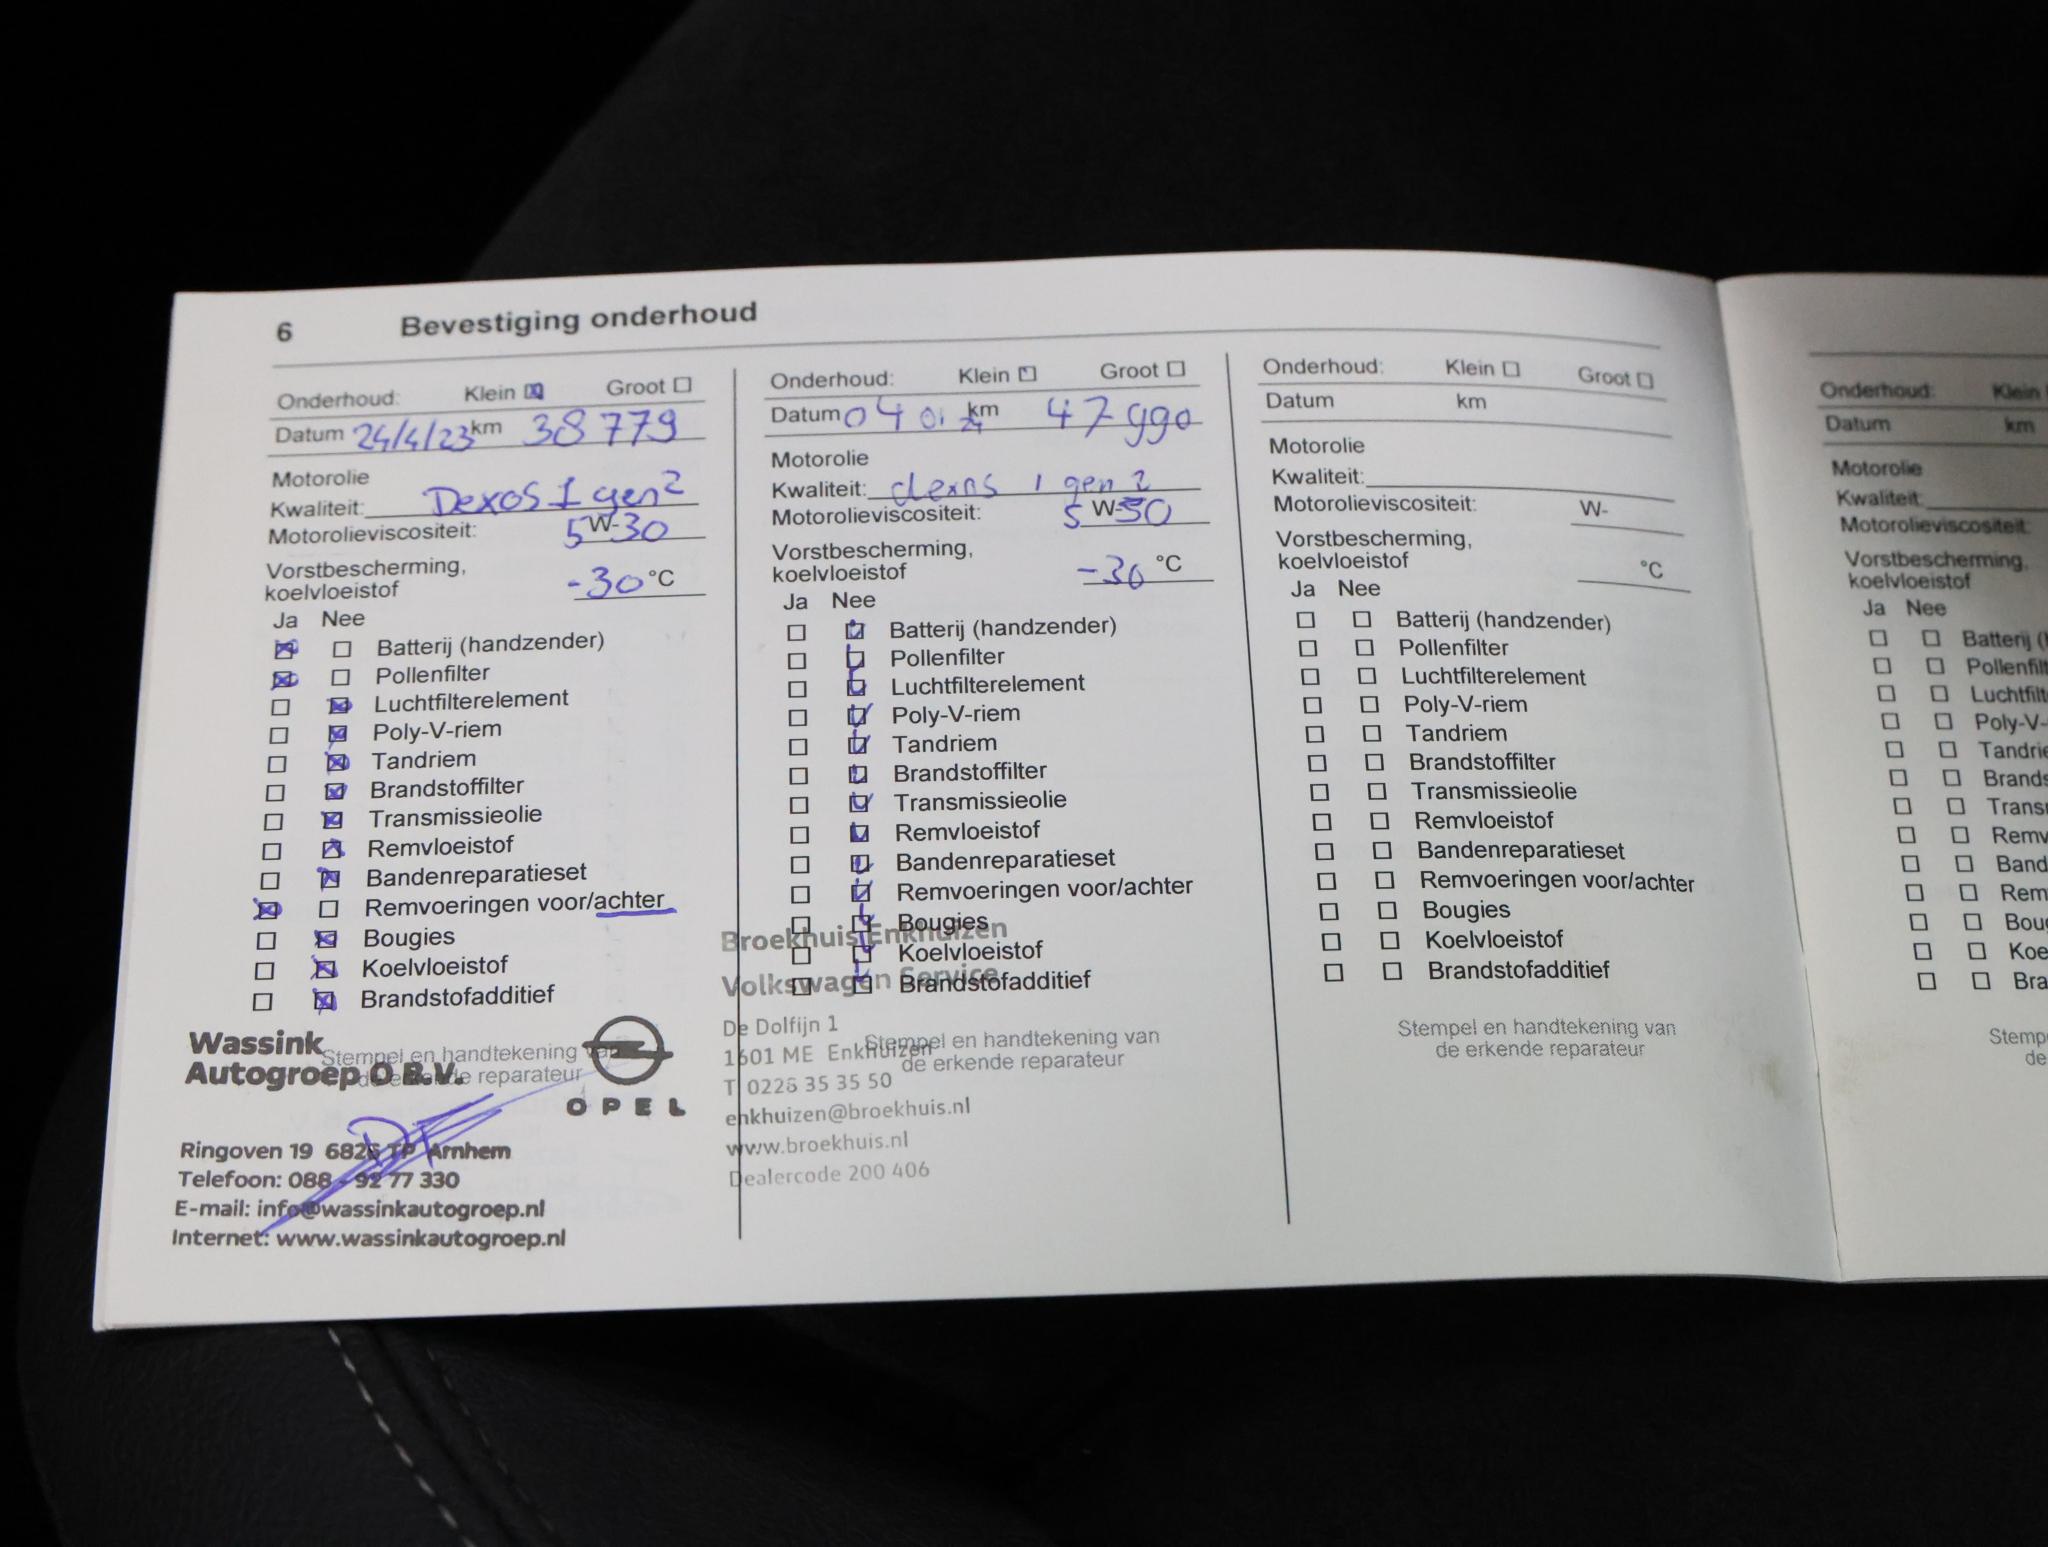 6 Bevestiging onderhoud
Onderhoud: Klein Groot
Datum 24/4/23 km 38779
Motorolie
Kwaliteit: Dexos 1 gen 2
Motorolieviscositeit: 5 W- 30
Vorstbescherming,
koelvloeistof -30 °C
Ja Nee
Batterij (handzender)
Pollenfilter
Luchtfilterelement
Poly-V-riem
Tandriem
Brandstoffilter
Transmissieolie
Remvloeistof
Bandenreparatieset
Remvoeringen voor/achter
Bougies
Koelvloeistof
Brandstofadditief
Stempel en handtekening van
de erkende reparateur
Wassink
Autogroep O B.V.
OPEL
Ringoven 19 6826 TP Arnhem
Telefoon: 088 - 92 77 330
E-mail: info@wassinkautogroep.nl
Internet: www.wassinkautogroep.nl
Onderhoud: Klein Groot
Datum 04 01 24 km 47990
Motorolie
Kwaliteit: dexos 1 gen 2
Motorolieviscositeit: 5 W- 30
Vorstbescherming,
koelvloeistof -30 °C
Ja Nee
Batterij (handzender)
Pollenfilter
Luchtfilterelement
Poly-V-riem
Tandriem
Brandstoffilter
Transmissieolie
Remvloeistof
Bandenreparatieset
Remvoeringen voor/achter
Bougies
Koelvloeistof
Brandstofadditief
Stempel en handtekening van
de erkende reparateur
Broekhuis Enkhuizen
Volkswagen Service
De Dolfijn 1
1601 ME Enkhuizen
T 0228 35 35 50
enkhuizen@broekhuis.nl
www.broekhuis.nl
Dealercode 200 406
Onderhoud: Klein Groot
Datum km
Motorolie
Kwaliteit:
Motorolieviscositeit: W-
Vorstbescherming,
koelvloeistof °C
Ja Nee
Batterij (handzender)
Pollenfilter
Luchtfilterelement
Poly-V-riem
Tandriem
Brandstoffilter
Transmissieolie
Remvloeistof
Bandenreparatieset
Remvoeringen voor/achter
Bougies
Koelvloeistof
Brandstofadditief
Stempel en handtekening van
de erkende reparateur
Onderhoud: Klein
Datum km
Motorolie
Kwaliteit:
Motorolieviscositeit:
Vorstbescherming,
koelvloeistof
Ja Nee
Batterij (
Pollenfilt
Luchtfilt
Poly-V-
Tandrie
Brands
Transm
Remv
Band
Rem
Boug
Koe
Bra
Stemp
de